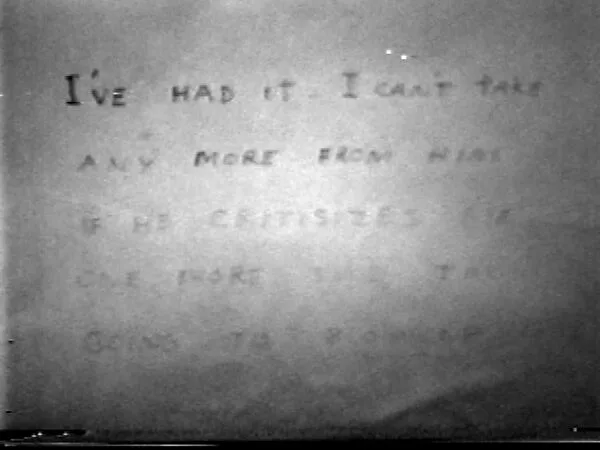 I'VE HAD IT. I CAN'T TAKE
ANY MORE FROM HIM
IF HE CRITISIZES ME
ONE MORE
GOING TO